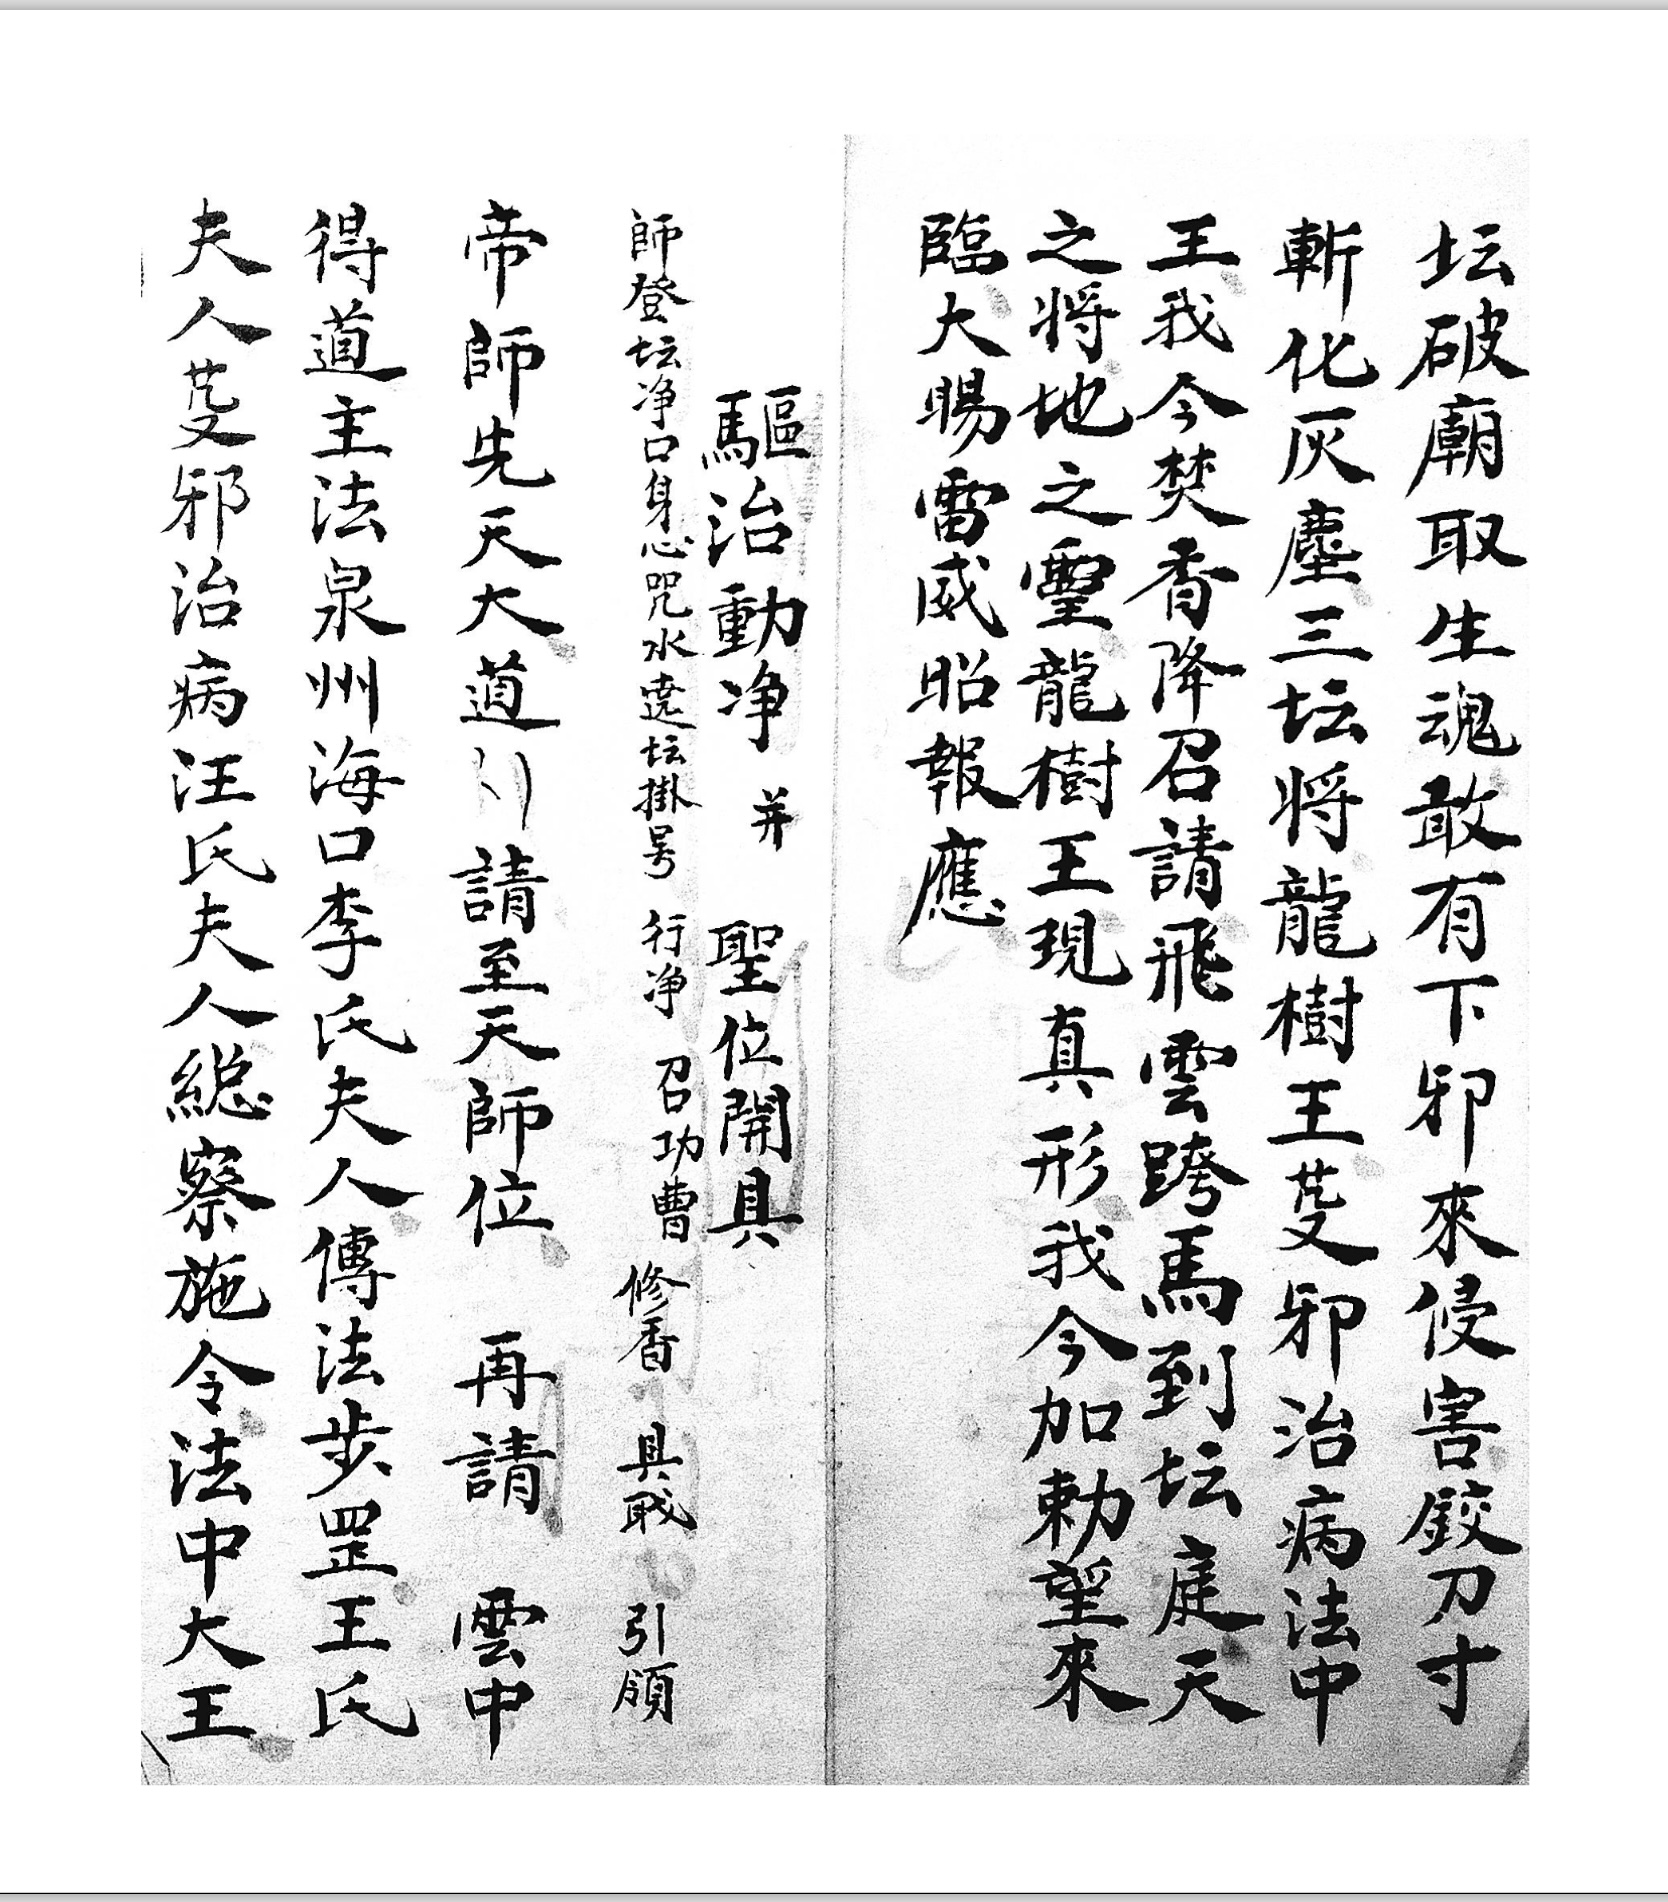 坛破廟取生魂敢有下邪來侵害鉸刀寸
斬化灰塵三坛将龍樹王茇邪治病法中
王我今焚香降召請飛雲跨馬到坛庭天
之将地之靈龍樹王現真形我今加勅望來
臨大賜雷威昭報應
驅治動净 并 聖位開具
師登坛净口身心咒水遶坛掛号 行净 召功曹 修香 具職 引領
帝師先天大道 請至天師位 再請 雲中
得道主法泉州海口李氏夫人傳法步罡王氏
夫人茇邪治病汪氏夫人総察施令法中大王